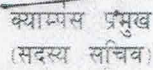 क्याम्पस प्रमुख
(सदस्य सचिव)